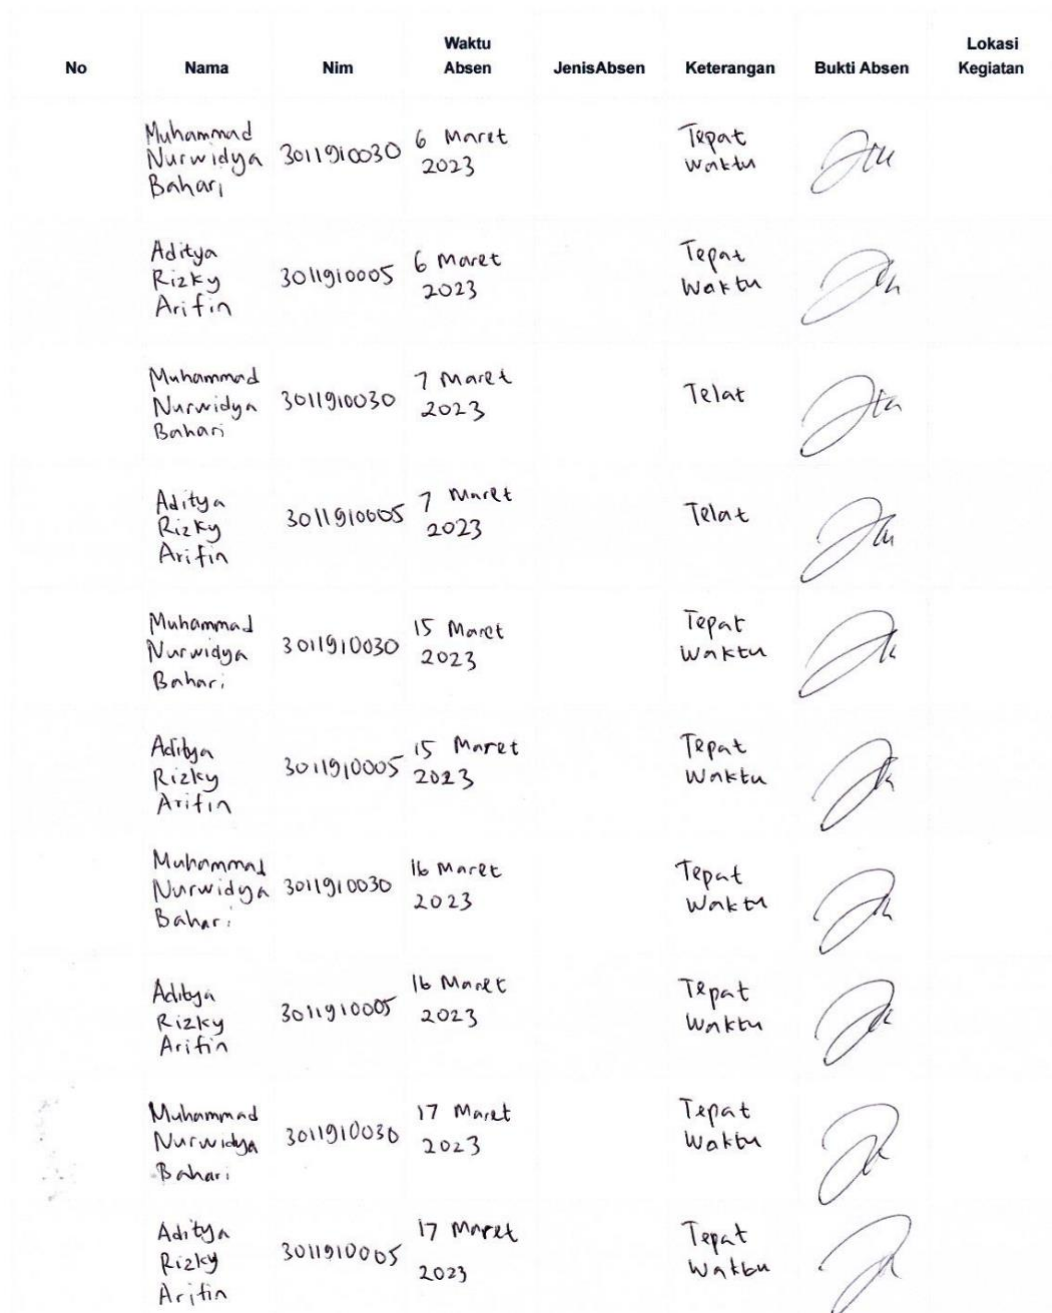 No Nama Nim Waktu Absen JenisAbsen Keterangan Bukti Absen Lokasi Kegiatan
Muhammad Nurwidya Bahari 3011910030 6 Maret 2023 Tepat Waktu
Aditya Rizky Arifin 3011910005 6 Maret 2023 Tepat Waktu
Muhammad Nurwidya Bahari 3011910030 7 Maret 2023 Telat
Aditya Rizky Arifin 3011910005 7 Maret 2023 Telat
Muhammad Nurwidya Bahari 3011910030 15 Maret 2023 Tepat Waktu
Aditya Rizky Arifin 3011910005 15 Maret 2023 Tepat Waktu
Muhammad Nurwidya Bahari 3011910030 16 Maret 2023 Tepat Waktu
Aditya Rizky Arifin 3011910005 16 Maret 2023 Tepat Waktu
Muhammad Nurwidya Bahari 3011910030 17 Maret 2023 Tepat Waktu
Aditya Rizky Arifin 3011910005 17 Maret 2023 Tepat Waktu